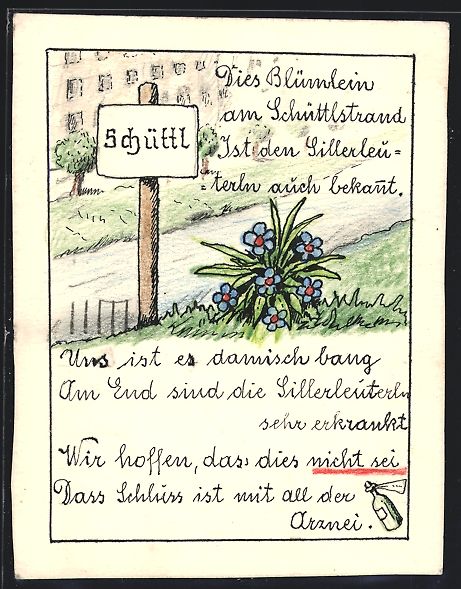 Schüttl
Dies Blümlein
am Schüttlstrand
Ist den Sillerleu=
=terln auch bekan̄t.
Uns ist es damisch bang
Am End sind die Sillerleuterln
sehr erkrankt
Wir hoffen, dass dies nicht sei
Dass Schluss ist mit all der
Arznei.